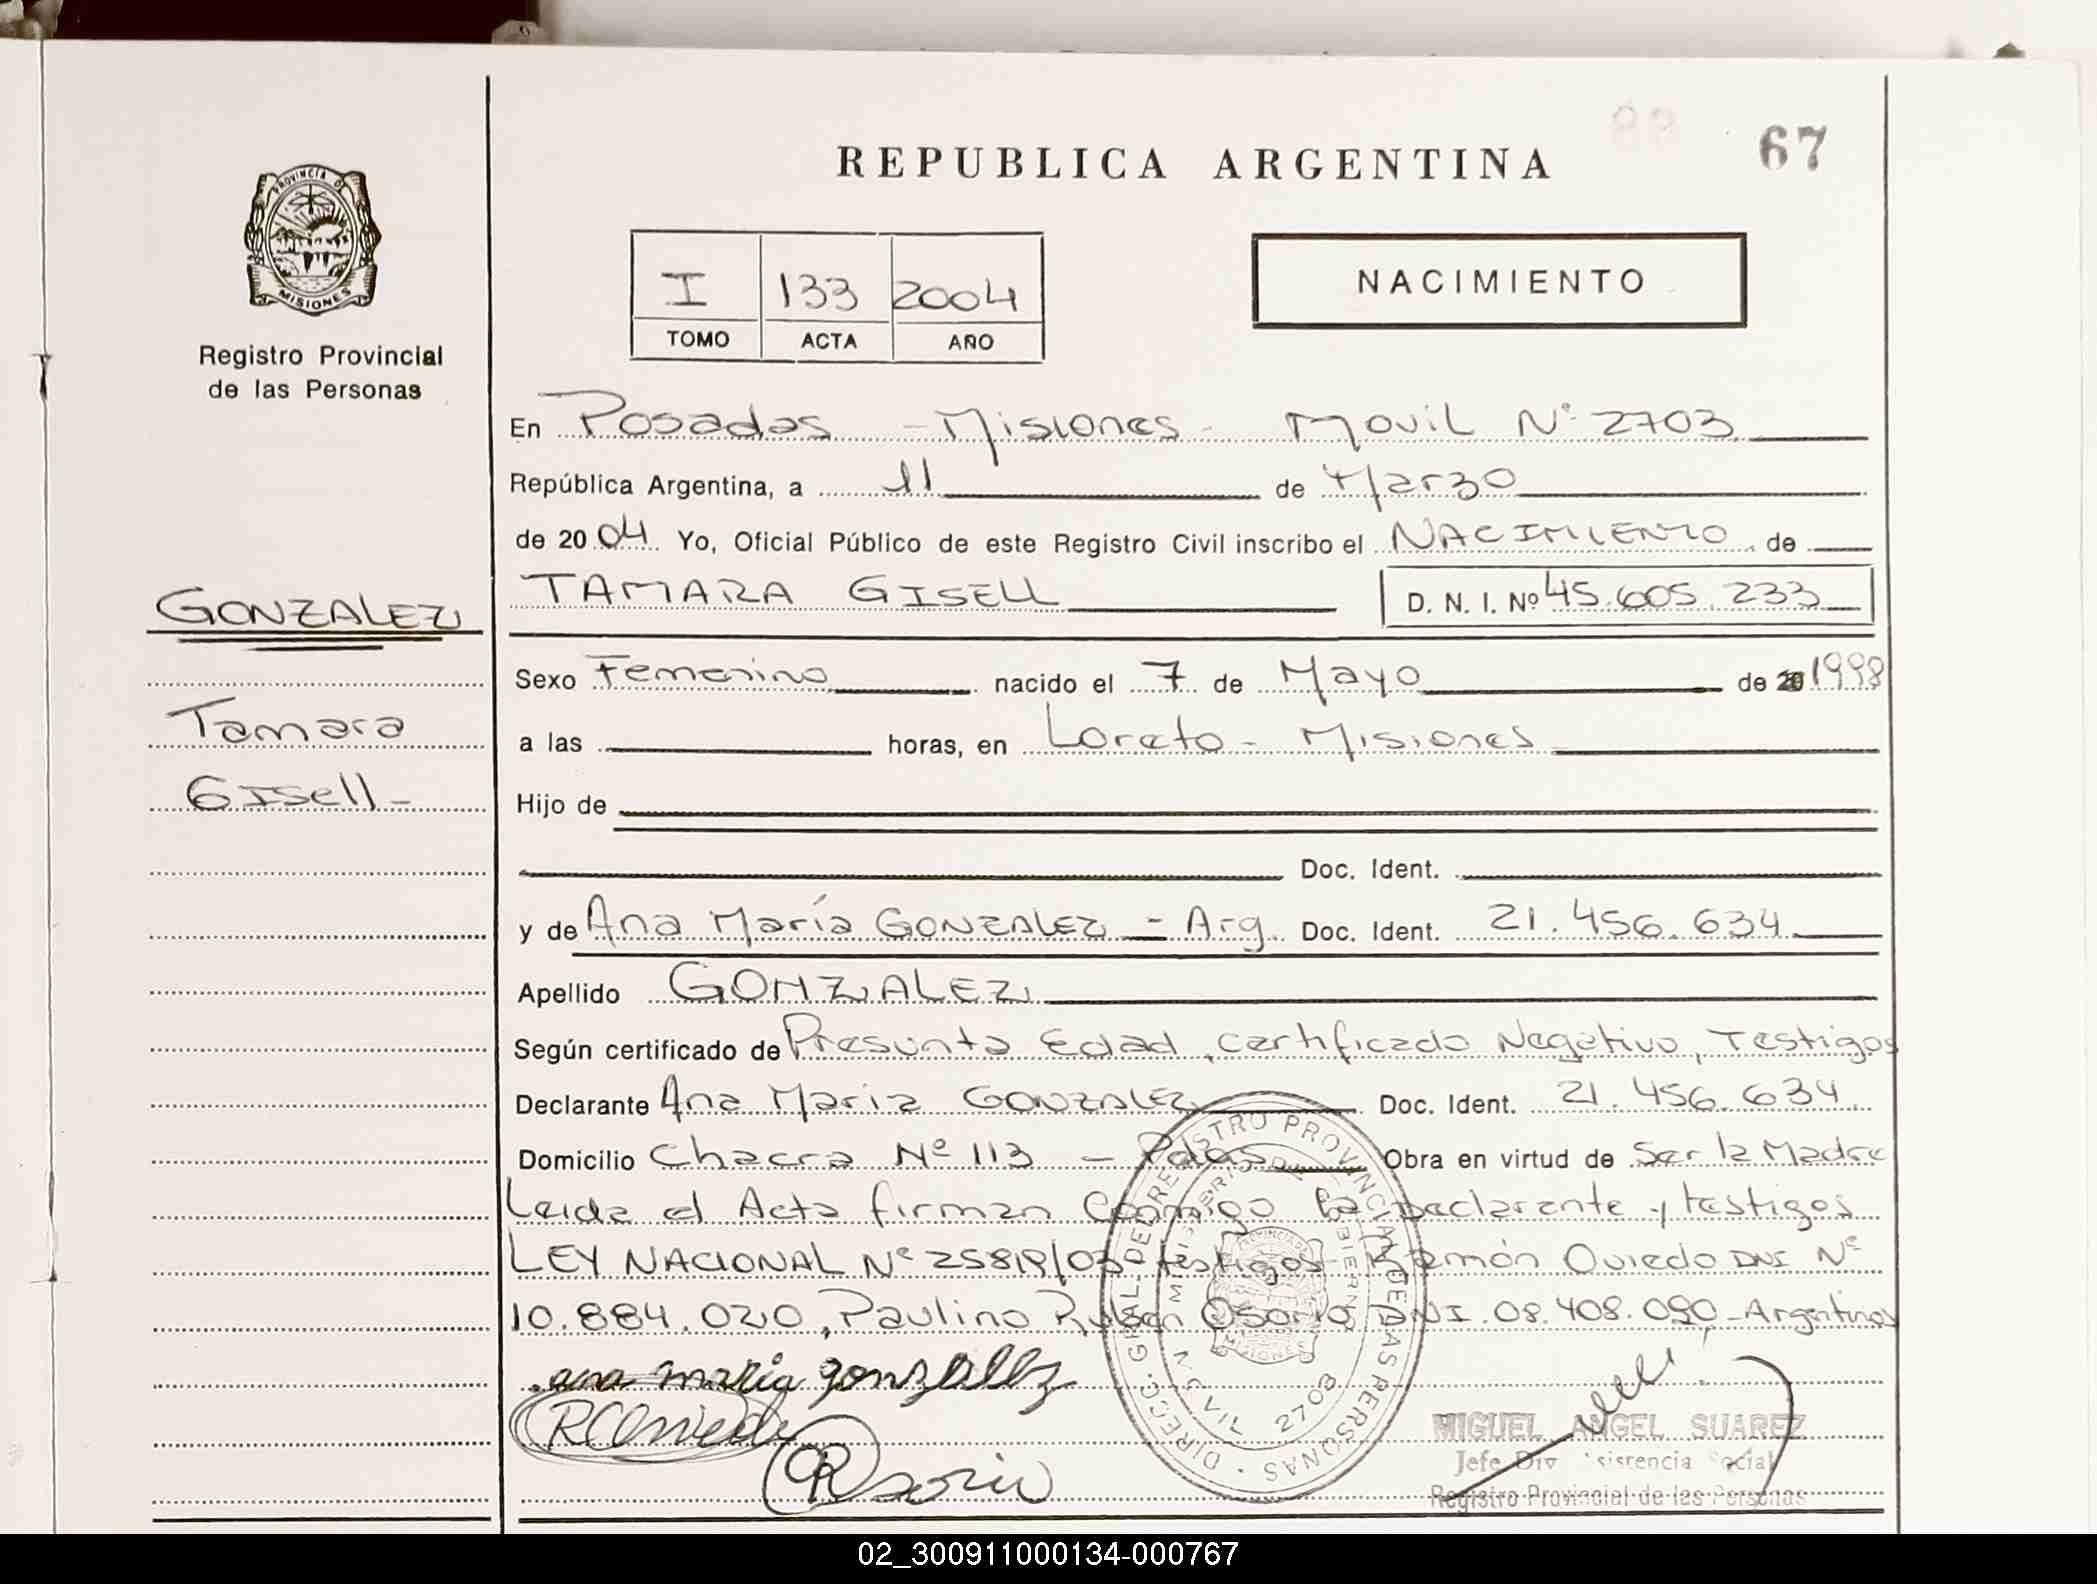 67
REPUBLICA ARGENTINA
PROVINCIA DE
MISIONES
Registro Provincial
de las Personas
I 133 2004
TOMO ACTA AÑO
NACIMIENTO
En Posadas - Misiones - Movil Nº 2703
República Argentina, a 11 de Marzo
de 2004 Yo, Oficial Público de este Registro Civil inscribo el NACIMIENTO de
GONZALEZ
TAMARA GISELL D. N. I. Nº 45.605.233
Sexo Femenino nacido el 7 de Mayo de 1998
Tamara
a las horas, en Loreto - Misiones
Gisell -
Hijo de
Doc. Ident.
y de Ana María GONZALEZ - Arg. Doc. Ident. 21.456.634
Apellido GONZALEZ
Según certificado de Presunta Edad, certificado Negativo, Testigos
Declarante Ana Maria GONZALEZ Doc. Ident. 21.456.634
Domicilio Chacra Nº 113 - Pdas Obra en virtud de Ser la Madre
Leida el Acta firman Conmigo la Declarante y testigos
LEY NACIONAL Nº 25819/03 - testigos Ramón Oviedo DNI Nº
10.884.020, Paulino Ruben Osorio DNI. 08.408.090 - Argentinos
ana maria gonzallez
DIREC. GRAL. DE REGISTRO PROVINCIAL DE LAS PERSONAS
MOVIL Nº 2703
MIGUEL ANGEL SUAREZ
Jefe Div Social
Registro Provincial de las Personas
02_300911000134-000767